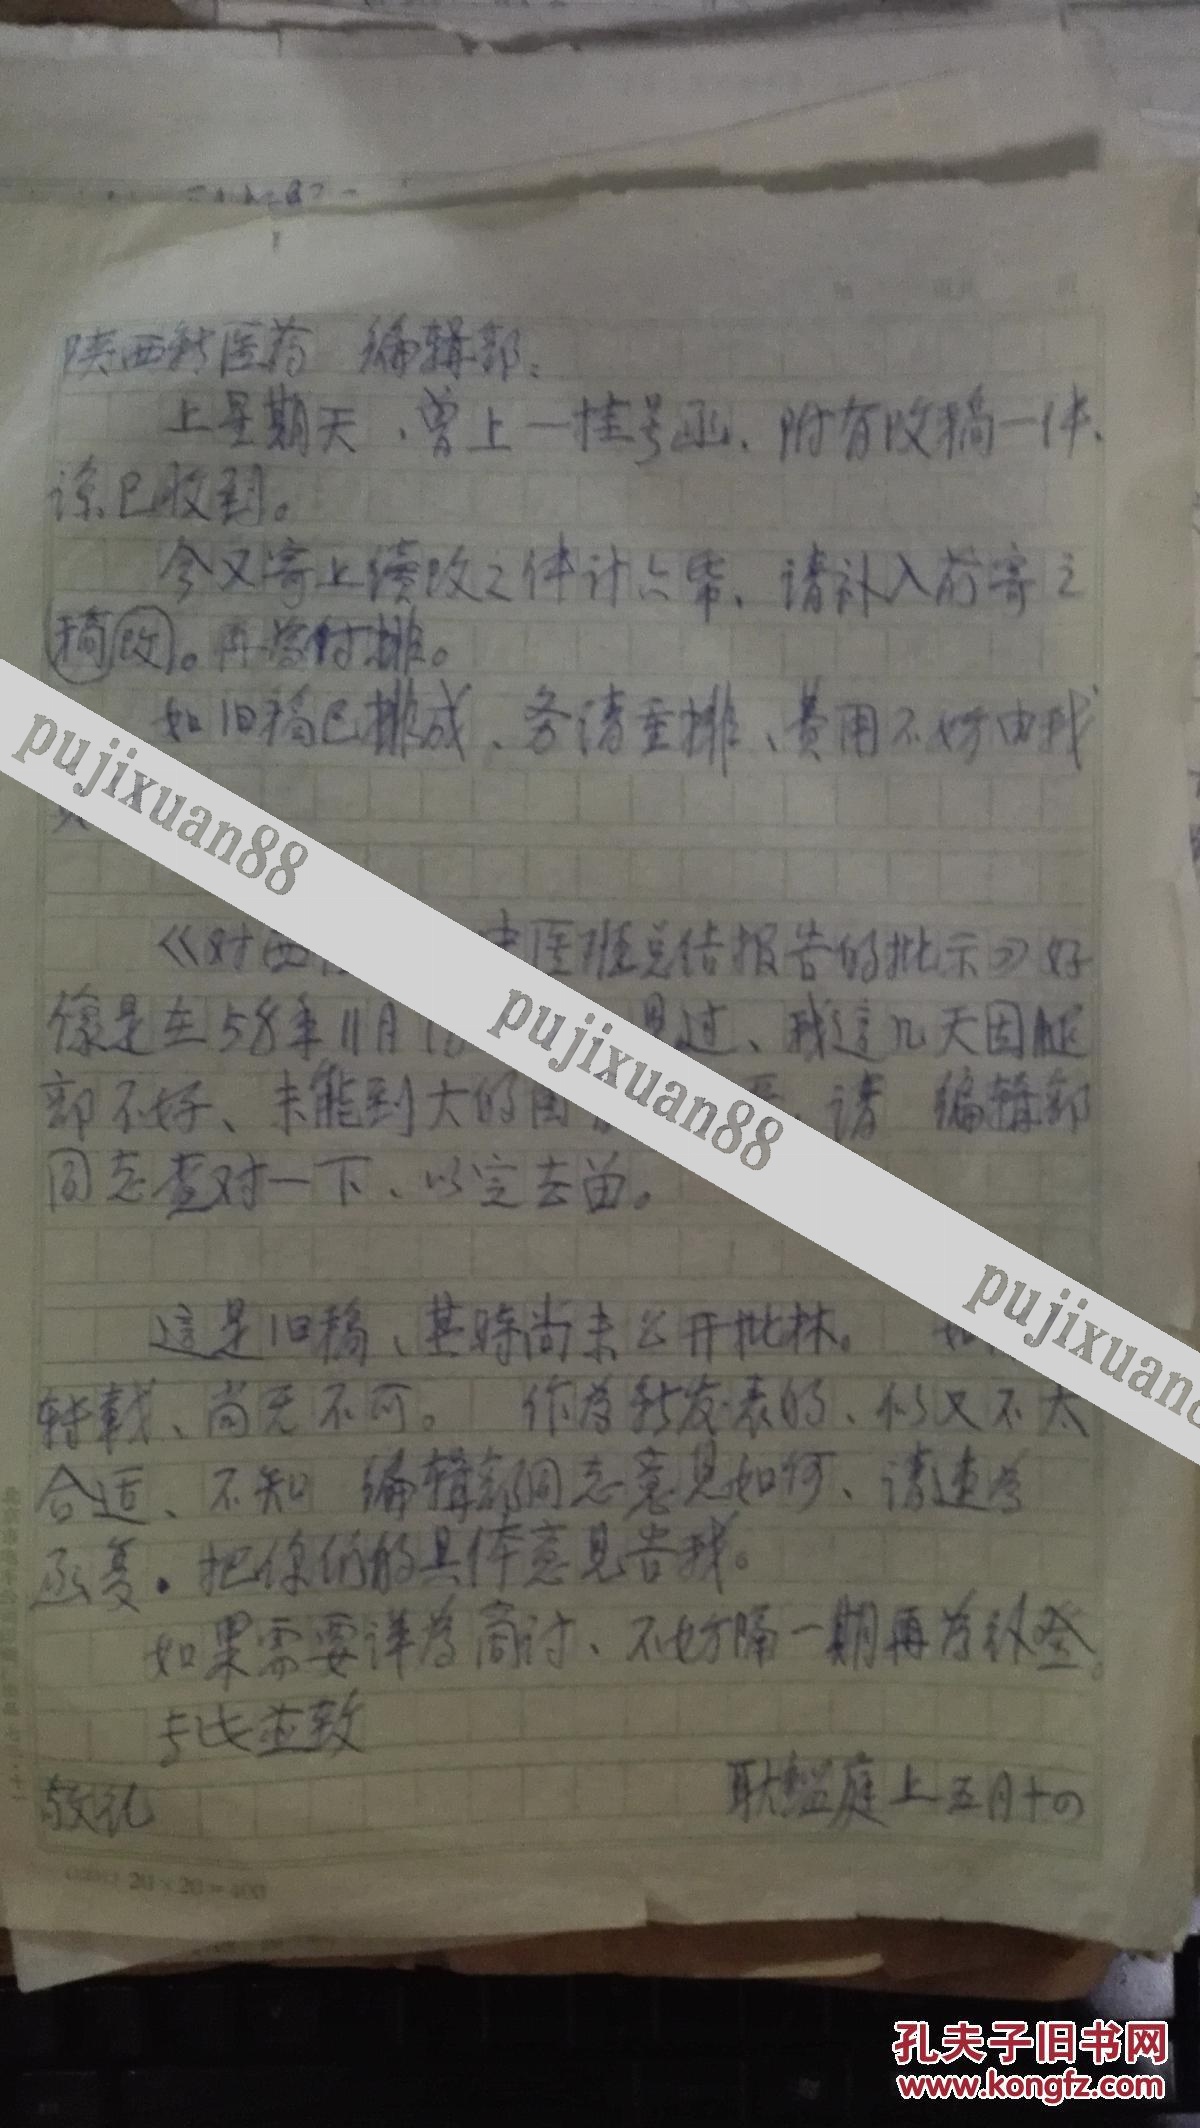 陕西新医药 编辑部：
上星期天、曾上一挂号函、附有改稿一件、
谅已收到。
今又寄上续改之件计六帋、请补入前寄之
稿改。再为付排。
如旧稿已排成、务请重排、费用不妨由我
pujixuan88
《对西 医班总结报告的批示》好
像是在58年11月18 见过、我这几天因腿
pujixuan88
部不好、未能到大的图 请 编辑部
同志查对一下、以定去留。
pujixuan
这是旧稿、其时尚未公开批林。 如
转载、尚无不可。 作为新发表的、似又不太
合适、不知 编辑部同志意见如何、请速为
函复。把你们的具体意见告我。
如果需要详为商讨、不妨隔一期再为补登。
专此并致
敬礼
耿鉴庭上五月十四
20×20=400
孔夫子旧书网
www.kongfz.com